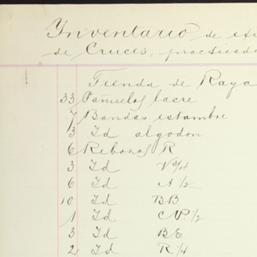 Inventario de exi
de Cruces, practicado
Tienda de Raya
33 Pañuelos lacre
7 Bandas estambre
3 Id algodon
6 Rebozos R
3 Id V 3/4
6 Id A 1/2
10 Id B B
1 Id CP 1/2
3 Id B E
2 Id R 1/4